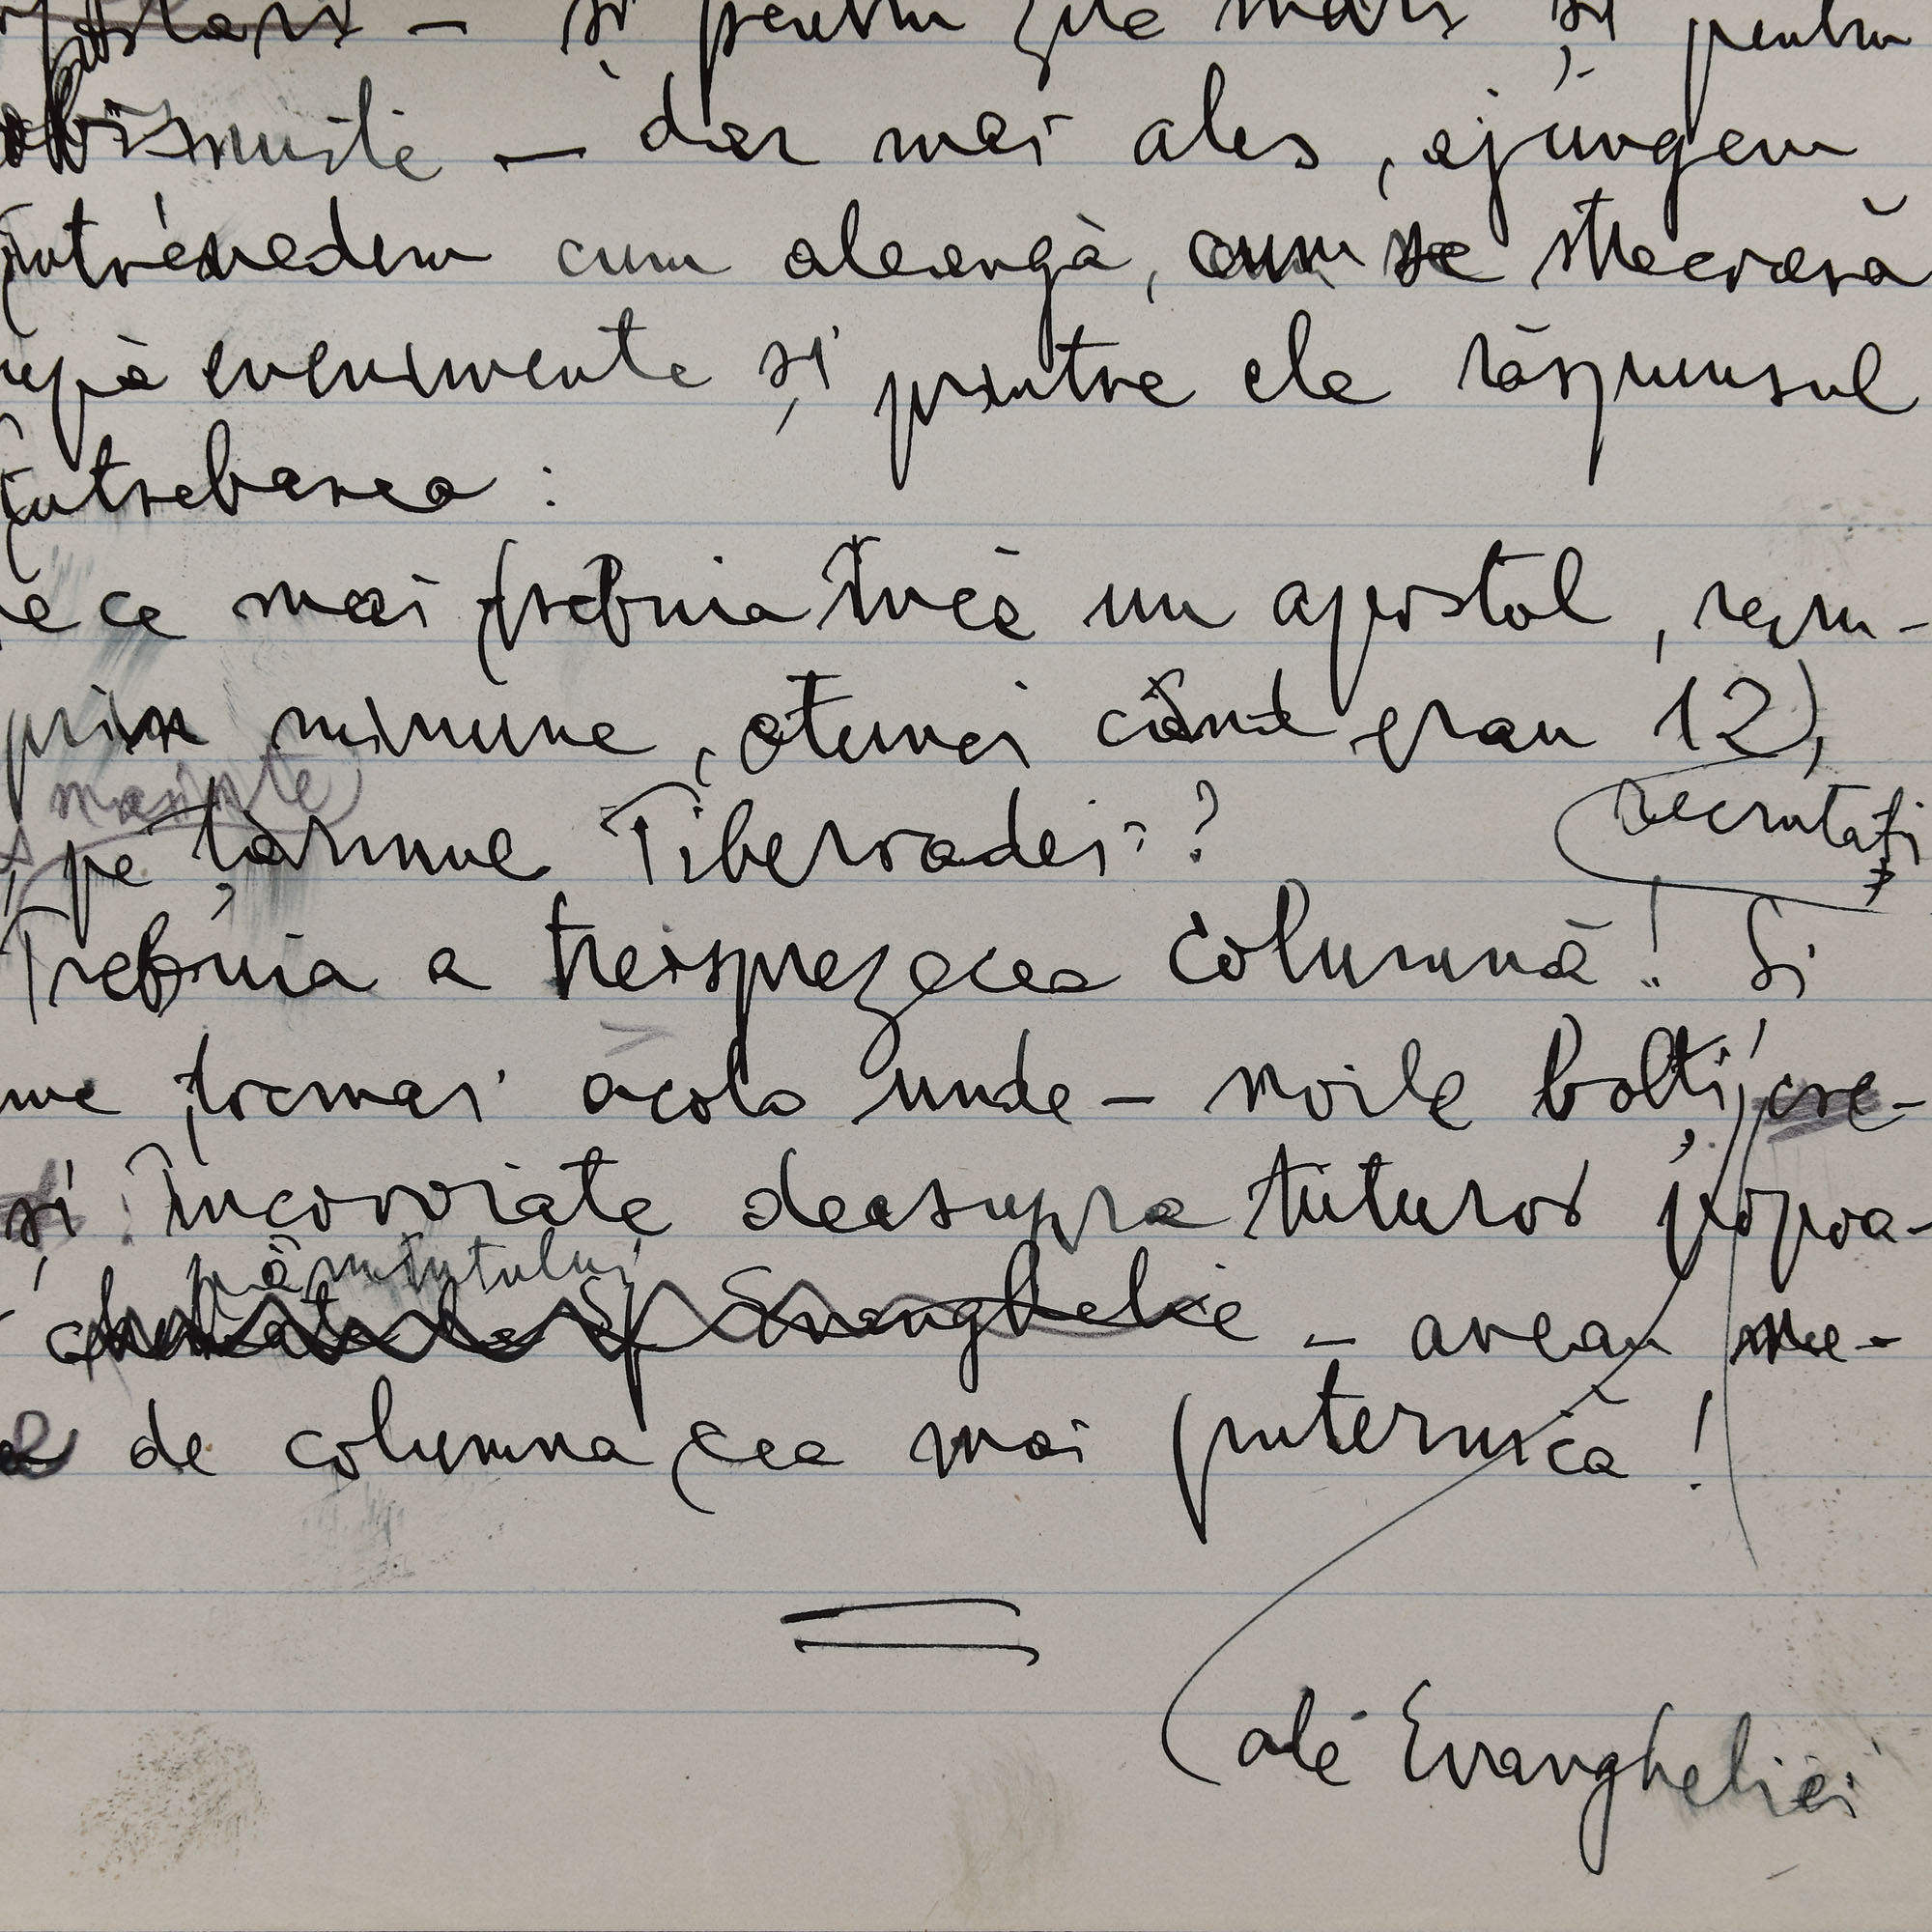 apostari – și pentru zile mari și pentru
obișnuite – dar mai ales, ajungem
întrevedem cum aleargă, cum se strecoară
după evenimente și printre ele răspunsul
întrebarea:
e ce mai trebuia încă un apostol, recru-
prin minune, atunci când erau 12,
mainte recrutați
pe țărmul Tiberiadei?
Trebuia a treisprezecea columnă! Și
me tocmai acolo unde – noile bolți, cre-
și încovoiate deasupra tuturor popoa-
pământului
chemate la Sf Evanghelie – aveau ne-
de columna cea mai puternică!
ale Evangheliei